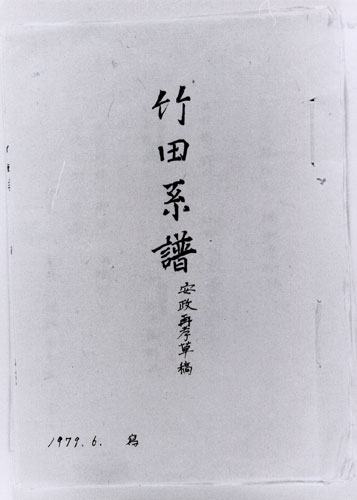 竹田系譜
安政再考草稿
1979.6. 写